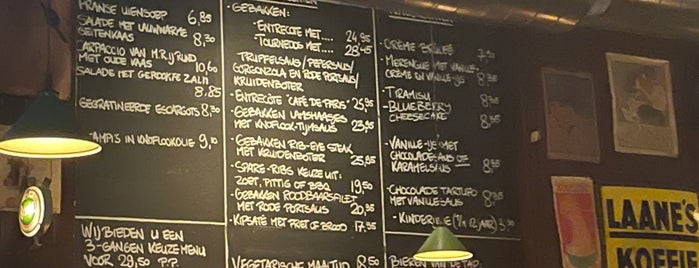 FRANSE UIENSOEP 6,85
SALADE MET LAUWWARME
GEITENKAAS 8,30
CARPACCIO VAN H.RIJRUND
MET OUDE KAAS 10,60
SALADE MET GEROOKTE ZALM
8,85
GEGRATINEERDE ESCARGOTS 8,30
GAMBA'S IN KNOFLOOKOLIE 9,10
WIJ BIEDEN U EEN
3-GANGEN KEUZEMENU
VOOR 29,50 P.P.
GEBAKKEN:
ENTRECOTE MET.... 24,95
TOURNEDOS MET.... 28,45
TRUFFELSAUS/PEPERSAUS/
GORGONZOLA EN RODE PORTSAUS/
KRUIDENBOTER
ENTRECOTE "CAFÉ DE PARIS" 25,95
GEBAKKEN LAMSHAASJES
MET KNOFLOOK-TIJMSAUS 23,95
GEBAKKEN RIB-EYE STEAK
MET KRUIDENBOTER 25,85
SPARE-RIBS KEUZE UIT:
ZOET, PITTIG OF BBQ 19,50
GEBAKKEN ROODBAARSFILET
MET RODE PORTSAUS 20,95
KIPSATÉ MET FRIET OF BROOD 17,95
VEGETARISCHE MAALTIJD 8,50
CRÈME BRÛLÉE 7,90
MERENGUE MET VANILLE-
CRÈME EN VANILLE-IJS 8,35
TIRAMISU 8,35
BLUEBERRY
CHEESECAKE 8,35
VANILLE-IJS MET
CHOCOLADESAUS OF
KARAMELSAUS 8,50
CHOCOLADE TARTUFO
MET VANILLESAUS 8,35
KINDERIJSJE (T/M 12 JAAR) 3,90
BIEREN VAN DE TAP
LAANE'S
KOFFIE